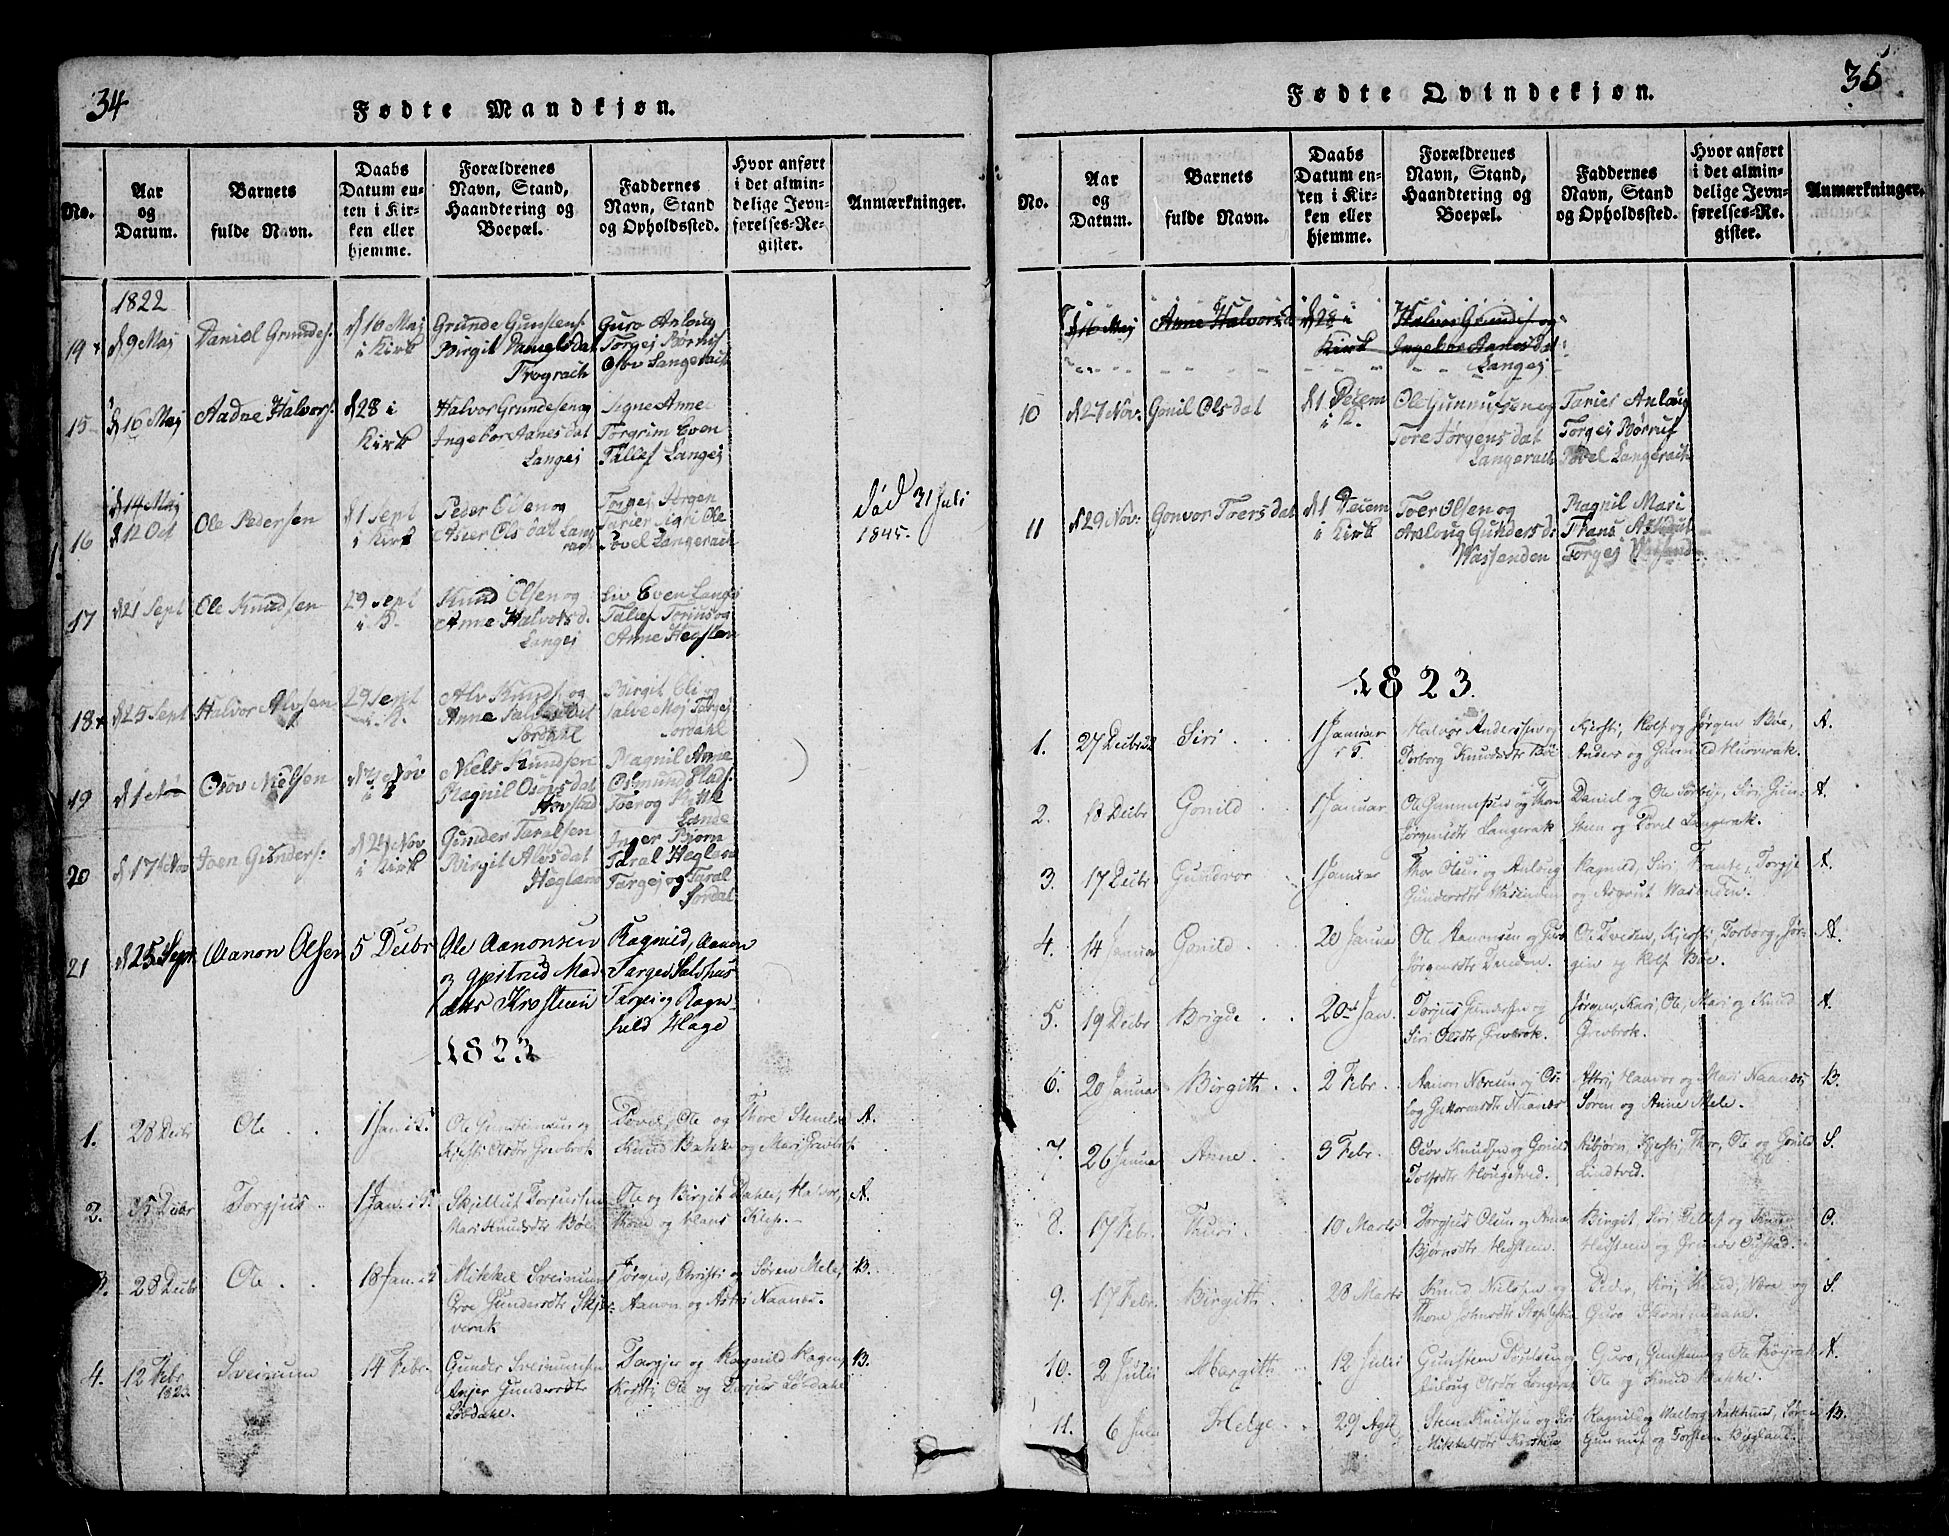 34
Fødte Mandkjøn.
No.
Aar
og
Datum.
Barnets
fulde Navn.
Daabs
Datum en-
ten i Kir-
ken eller
hjemme.
Forældrenes
Navn, Stand,
Haandtering og
Boepæl.
Faddernes
Navn, Stand
og Opholdssted.
Hvor anført
i det almin-
delige Jevn-
førelses-Re-
gister.
Anmærkninger.
1822
14 d 9 Maj Daniel Grundes. d 16 Maj
i Kirk
Grunde Gunstens.
Birgit Danielsdat
Guro Anloug
Torgej Børruf
Langerach
15 d 16 Maj Aadne Halvors. d 28 i
Kirk
Halvor Grundesen og
Ingebor Aanesdat
Langej
Signe Anne
Torgrim Even
Tallef Langej
d 14 Maj
16 d 12 Oct Ole Pedersen d 1 Sept
i Kirk
Peder Olsen og
Asier Olsdat Lang
rach
Torgej Jørgen
Tarier Sigri Ole
Povel Langerach
død 31 Juli
1845.
17 d 21 Sept Ole Knudsen 29 Sept
i K.
Knud Olsen og
Anne Halvorsd.
Langej
Liv Even Langej
Talief Torjus og
Anne Hegsten
18 d 25 Sept Halvor Alvsen 29 Sept
i K.
Alv Knuds. og
Anne Salvesdat
Jordahl
Birgit Eli og
Salve Moj Targej
Jordahl
19 d 1 Nov Osov Nielsen d Nov
Niels Knudsen
Magnil Osovsdat
Magnil Anne
Osmund Plads.
Toer og
Lande
20 d 17 Nov Joen Gunders: d 24 Nov
i Kirk
Gunder Taralsen
Birgit Alvsdat
Hegland
Inger Bjorn
Taral Hegland
Targej og Taral
Jordal
21 d 25 Sept. Aanon Olsen 5 Decbr
Ole Aanonsen
og Gjertrud Mad
dtr Krosteen
Ragnild, Aanon
Targej
Targei og Ragn
hild Hage
1823
1. 28 Decbr Ole 1 Jan. i K.
Ole Gunsteinsen og
Kjersti Olsdtr Grevbrok
Povel, Ole og Thore Stemlie
Knud Bakke og Mari Grevbrok
A.
2. 25 Decbr Torgjus 1 Jan. i K.
Skjelluf Torjussen
Mari Knudsdtr Bøe
Ole og Birgit Dahle, Halvor,
Thom og Claus Klep.
A.
3. 28 Decbr Ole 18 Jan.
Mikkel Sveinum
Eve Gundersdtr Skje-
verak
Jørgen, Christi og Søren Mele,
Aanon og Astri Naanes.
B.
4. 12 Febr
1823. Sveinum 14 Febr.
Gunder Sveinumsen
Anjer Gundersdtr
Løbdahl.
Targjer og Ragnild Hagen,
Kristi, Ole og Targius Løbdahl
B.
35
Fødte Qvindekjøn.
No.
Aar
og
Datum.
Barnets
fulde Navn.
Daabs
Datum en-
ten i Kir-
ken eller
hjemme.
Forældrenes
Navn, Stand,
Haandtering og
Boepæl.
Faddernes
Navn, Stand
og Opholdssted.
Hvor anført
i det almin-
delige Jevn-
førelses-Re-
gister.
Anmærkninger.
d 16 Maj Anne Halvorsd. d 28 i
Kirk
Halvor Grundes. og
Ingebor Aanesdat
Langej
10 d 27 Nov. Gonil Olsdat d 1 Decem
i K.
Ole Gunnufsen og
Tore Jørgensdat
Langerach
Tarier Anloug
Torgej Børruf
Povel Langerach
11 d 29 Nov: Gonvor Toersdat d 1 Decem
i Kirk
Toer Olsen og
Anloug Gundersd:
Wassenden
Magnil Mari
Frans
Torgej
1823.
1. 27 Decbr 22 Siri 1 Januar
Halvor Anderssen og
Torborg Knudsdtr Bøe
Kjersti, Rolf og Jørgen Bøe,
Anders og Gunnild Hurverak.
A.
2. 18 Decbr Gonild 1 Januar
Ole Gunnufsen og Thore
Jørgensdtr Langerak
Daniel og Ole Torbio, Siri Gun-
steen og Povel Langerak.
A.
3. 17 Decbr Gundvor 1 Januar
Thor Olsen og Anloug
Gundersdtr Wasenden
Ragnild, Siri, Frants, Torgje
og Asgrut Wasenden.
A.
4. 14 Januar Gonild 20 Januar
Ole Aanonsen og Guro
Jørgensdtr Dueden.
Ole Tveden, Kjersti, Torborg, Jør-
gen og Rolf Bøe.
A.
5. 19 Decbr Brigde 20 Jan.
Torjus Gundersen og
Siri Olsdtr Grevbrok.
Jørgen, Kari, Ole, Mari og Knud
Grevbrok.
A.
6. 20 Januar Birgith 2 Febr.
Aanon Nersten og Os-
log Guttormsdtr Naanes
Attri, Haavor og Mari Naanes
Søren og Anne Mele.
B.
7. 26 Januar Anne 9 Febr.
Osov Knudsen og Gonild
Tolfsdtr Hougstved.
Asbjørn, Kjersti, Thor, Ole og Gonild
Lindtved.
S.
8. 17 Febr. Thuri 10 Marts
Torgjus Olsen og Anne
Bjørnsdtr Hedsteen.
Birgit, Siri, Tellef og Knud
Hedsteen og Grunde Oustad.
O.
9. 17 Febr. Birgith 28 Marts
Knud Nielsen og
Thone Johnsdtr
Peder, Siri, Knud, Niere og
Guro
S.
10. 2 Julii Margith 12 Julii
Gunsteen Povelsen og
Anloug Olsdtr Langerak
Guro, Gunsteen og Ole Trøgrak
Ole og Knud Bakke.
A.
11. 6 Julii Helge 29 Agst
Steen Knudsen og Siri
Mikkelsdtr
Ragnild og Walborg Nakkhus, Søren
Gunnuf og Torsteen Bygland.
B.